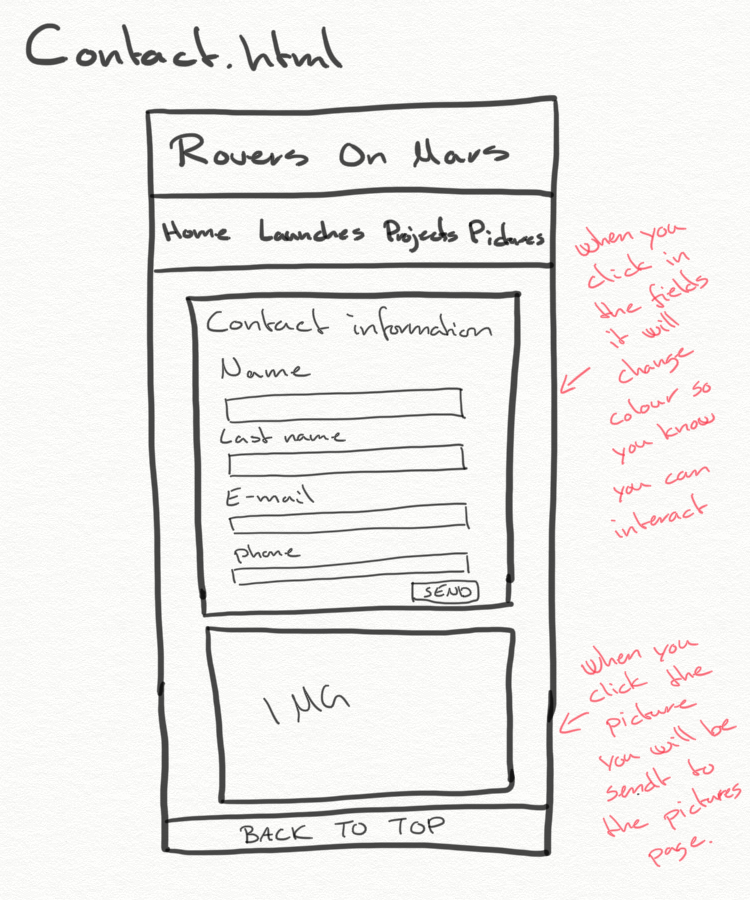 Contact.html
Rovers On Mars
Home Launches Projects Pictures
Contact information
Name
Last name
E-mail
phone
SEND
IMG
BACK TO TOP
when you
click in
the fields
it will
change
colour so
you know
you can
interact
when you
click the
picture
you will be
sendt to
the pictures
page.